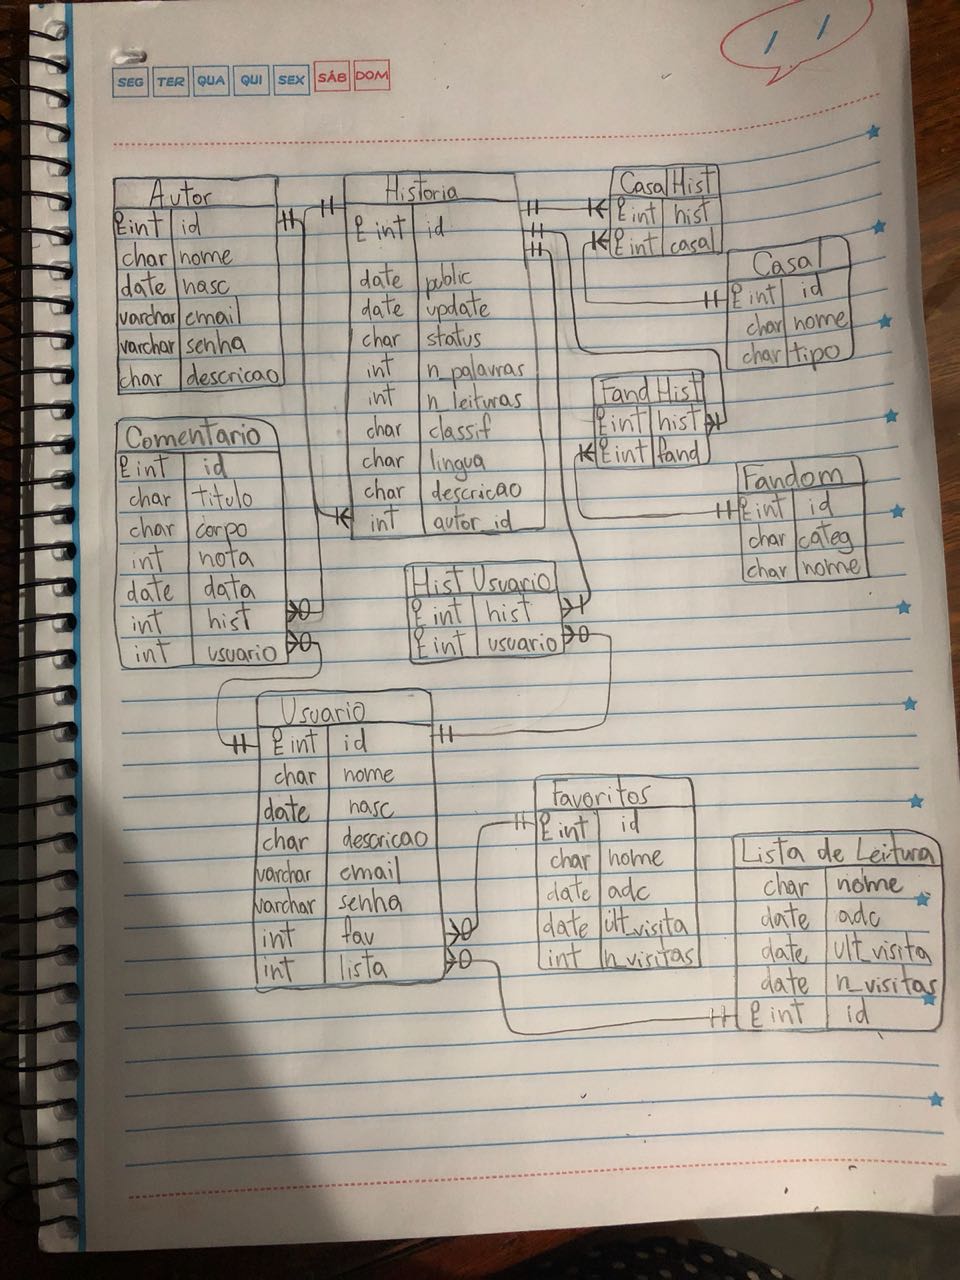 SEG TER QUA QUI SEX SÁB DOM
/ /
Autor
int id
char nome
date nasc
varchar email
varchar senha
char descricao
Historia
int id
date public
date update
char status
int n_palavras
int n_leituras
char classif
char lingua
char descricao
int autor_id
Casal Hist
int hist
int casal
Casal
int id
char nome
char tipo
Fand Hist
int hist
int fand
Fandom
int id
char categ
char nome
Comentario
int id
char titulo
char corpo
int nota
date data
int hist
int usuario
Hist Usuario
int hist
int usuario
Usuario
int id
char nome
date nasc
char descricao
varchar email
varchar senha
int fav
int lista
Favoritos
int id
char nome
date adc
date ult_visita
int n_visitas
Lista de Leitura
char nome
date adc
date ult_visita
date n_visitas
int id